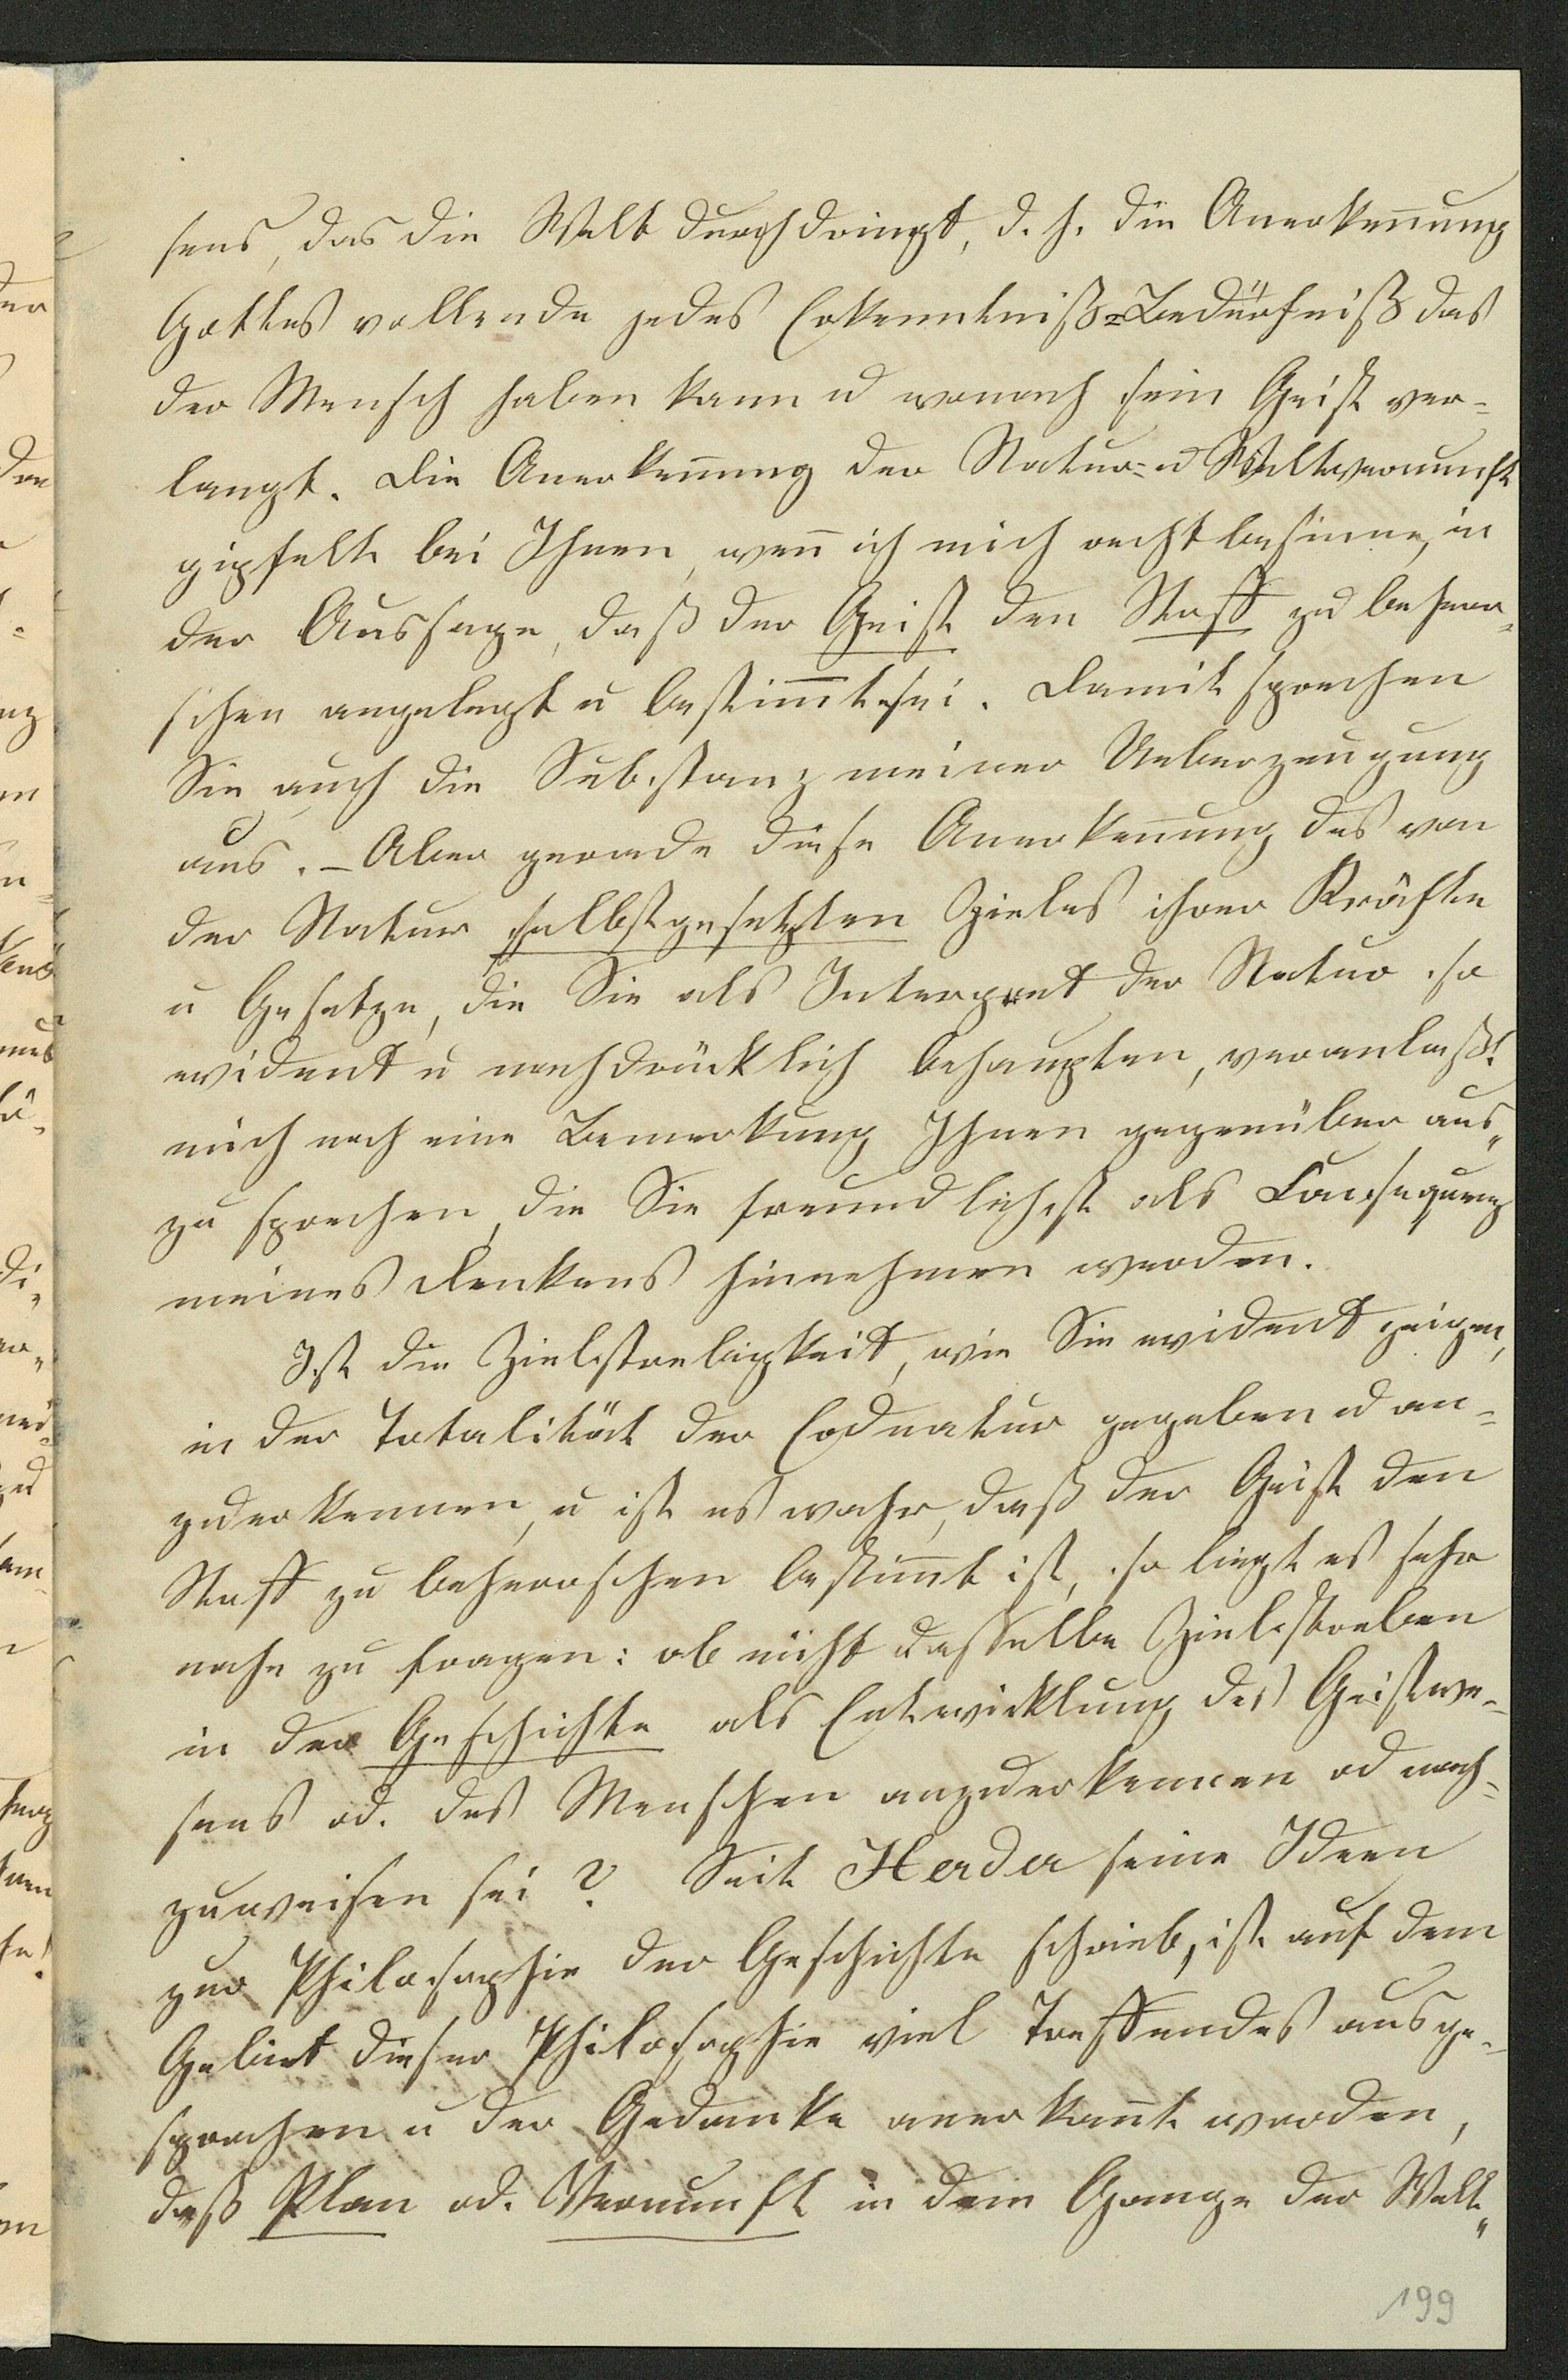 sens, das die Welt durchdringt, d. h. die Anerkennung
Gottes vollende jedes Erkenntniß=Bedürfniß das
der Mensch haben kann u wonach sein Geist ver=
langt. Die Anerkennung der Natur= u Weltvernunft
gipfelt bei Ihnen, wenn ich mich recht besinne, in
der Aussage, daß der Geist den Stoff zu beherr=
schen angelegt u bestimmt sei. Damit sprechen
Sie auch die Substanz meiner Ueberzeugung
aus. – Aber gerade diese Anerkennung des von
der Natur selbstgesetzten Zieles ihrer Kräfte
u Gesetze, die Sie als Interpret der Natur so
evident u nachdrücklich behaupten, veranlaßt
mich noch eine Bemerkung Ihnen gegenüber aus=
zu sprechen, die Sie freundlichst als Consequenz
meines Denkens hinnehmen werden.
Ist die Zielstrebigkeit, wie Sie evident zeigen,
in der Totalität der Erdnatur gegeben u an=
zuerkennen, u ist es wahr, daß der Geist den
Stoff zu beherrschen bestimmt ist, so liegt es sehr
nahe zu fragen: ob nicht dasselbe Zielstreben
in der Geschichte als Entwicklung des Geistwe=
sens od. des Menschen anzuerkennen od nach=
zuweisen sei? Seit Herder seine Ideen
zur Philosophie der Geschichte schrieb, ist auf dem
Gebiet dieser Philosophie viel Treffendes ausge=
sprochen u der Gedanke anerkannt worden,
daß Plan od. Vernunft in dem Gange der Welt=
199